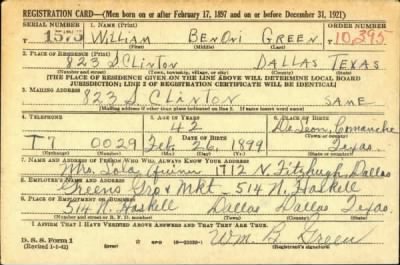 REGISTRATION CARD—(Men born on or after February 17, 1897 and on or before December 31, 1921)
SERIAL NUMBER 1. NAME (Print) ORDER NUMBER
1575 WILLIAM BENONI GREEN 10,395
(First) (Middle) (Last)
2. PLACE OF RESIDENCE (Print)
823 S CLINTON DALLAS TEXAS
(Number and street) (Town, township, village, or city) (County) (State)
[THE PLACE OF RESIDENCE GIVEN ON THE LINE ABOVE WILL DETERMINE LOCAL BOARD
JURISDICTION; LINE 2 OF REGISTRATION CERTIFICATE WILL BE IDENTICAL]
3. MAILING ADDRESS
823 S. CLINTON SAME
[Mailing address if other than place indicated on line 2. If same insert word same]
4. TELEPHONE 5. AGE IN YEARS 6. PLACE OF BIRTH
42 De Leon, Comanche
DATE OF BIRTH (Town or county)
T7 0029 Feb. 26, 1899 Texas
(Exchange) (Number) (Mo.) (Day) (Yr.) (State or country)
7. NAME AND ADDRESS OF PERSON WHO WILL ALWAYS KNOW YOUR ADDRESS
Mrs. Lola 1712 N. Fitzhugh, Dallas
8. EMPLOYER'S NAME AND ADDRESS
Greens Gro & Mkt - 514 N. Haskell
9. PLACE OF EMPLOYMENT OR BUSINESS
514 N. Haskell Dallas Dallas Texas
(Number and street or R. F. D. number) (Town) (County) (State)
I AFFIRM THAT I HAVE VERIFIED ABOVE ANSWERS AND THAT THEY ARE TRUE.
D. S. S. Form 1
(Revised 1-1-42) Wm B Green
(Registrant's signature)